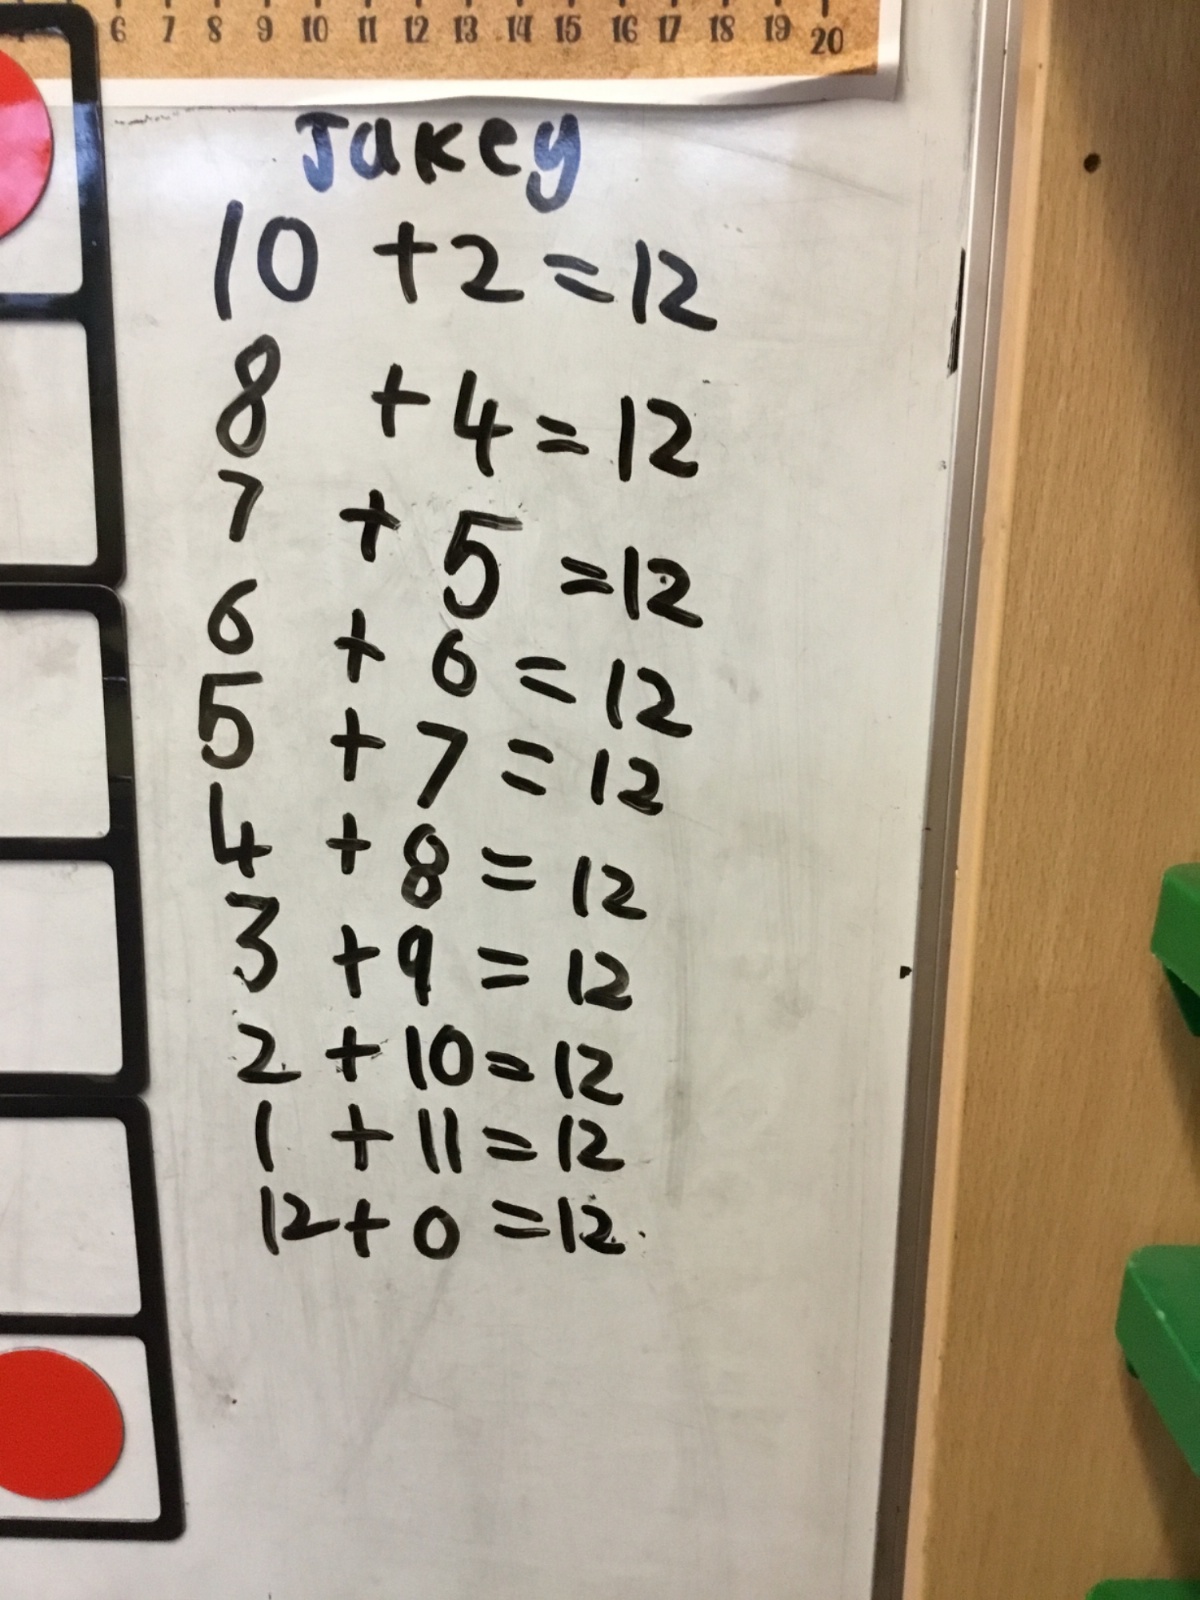 6 7 8 9 10 11 12 13 14 15 16 17 18 19 20
Jakey
10 + 2 = 12
8 + 4 = 12
7 + 5 = 12
6 + 6 = 12
5 + 7 = 12
4 + 8 = 12
3 + 9 = 12
2 + 10 = 12
1 + 11 = 12
12 + 0 = 12.